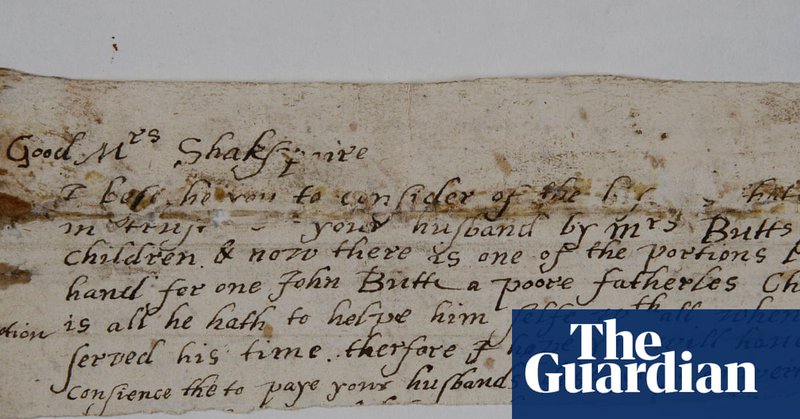 Good Mrs Shakspaire
I bese he you to consider of the hat
in trust your husband by Mrs Butts
children & now there is one of the portions
hand for one John Butts a poore fatherles Ch
is all he hath to helpe him selfe when
ction
served his time. therfore I hope will hand
Consience the to paye your husbands
The
Guardian